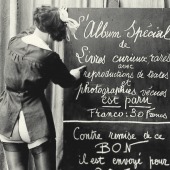 L'Album Spécial
de
Livres curieux, rares
avec
reproductions de textes
et
photographies vécues
est paru
Franco: 3o Francs
Contre remise de ce
BON
il est envoyé pour